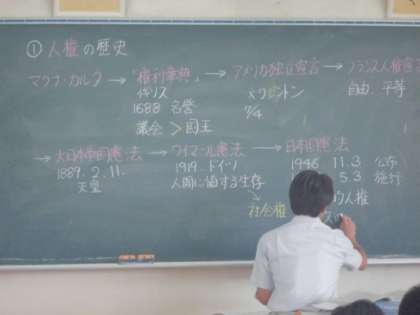 ① 人権の歴史
マグナ・カルタ → 「権利章典」 → アメリカ独立宣言 → フランス人権宣
イギリス
1688 名誉
議会 > 国王
ワシントン
7/4
自由、平等
→ 大日本帝国憲法 → ワイマール憲法 → 日本国憲法
1889. 2. 11.
天皇
1919. ドイツ
人間に値する生存
社会権
1946 11.3 公布
5.3 施行
人権